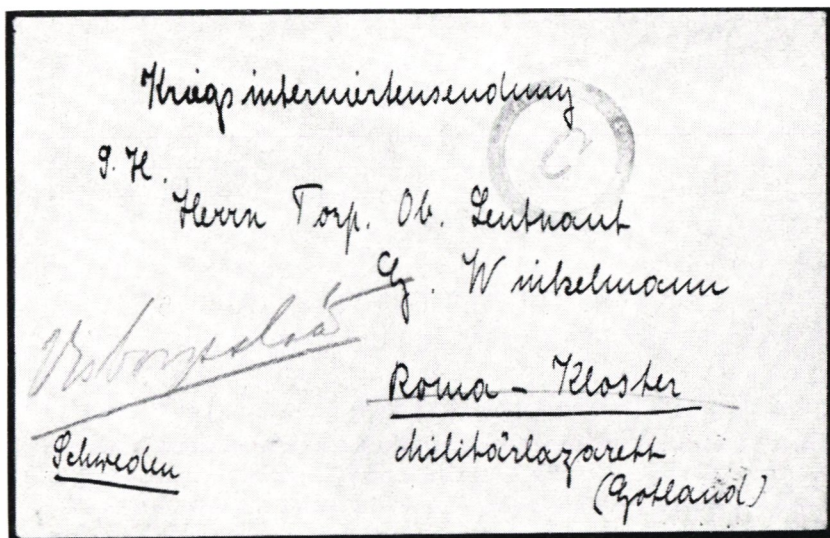 Kriegsinterniertensendung
S. H.
Herrn Torp. Ob. Leutnant
G. Winkelmann
Visborgsslä
Roma - Kloster
Schweden
Militärlazarett
(Gotland)